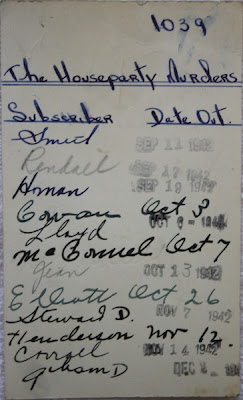 1039
The Houseparty Murders
Subscriber Date Out.
Smith SEP 11 1942
Rendall SEP 17 1942
Homan SEP 19 1942
Cowan Oct 3
Lloyd OCT 6 - 1942
McConnel Oct 7
Jean OCT 13 1942
Elliott Oct 26
Steward D. NOV 7 1942
Henderson Nov 12.
Corroll NOV 14 1942
Gibson D DEC